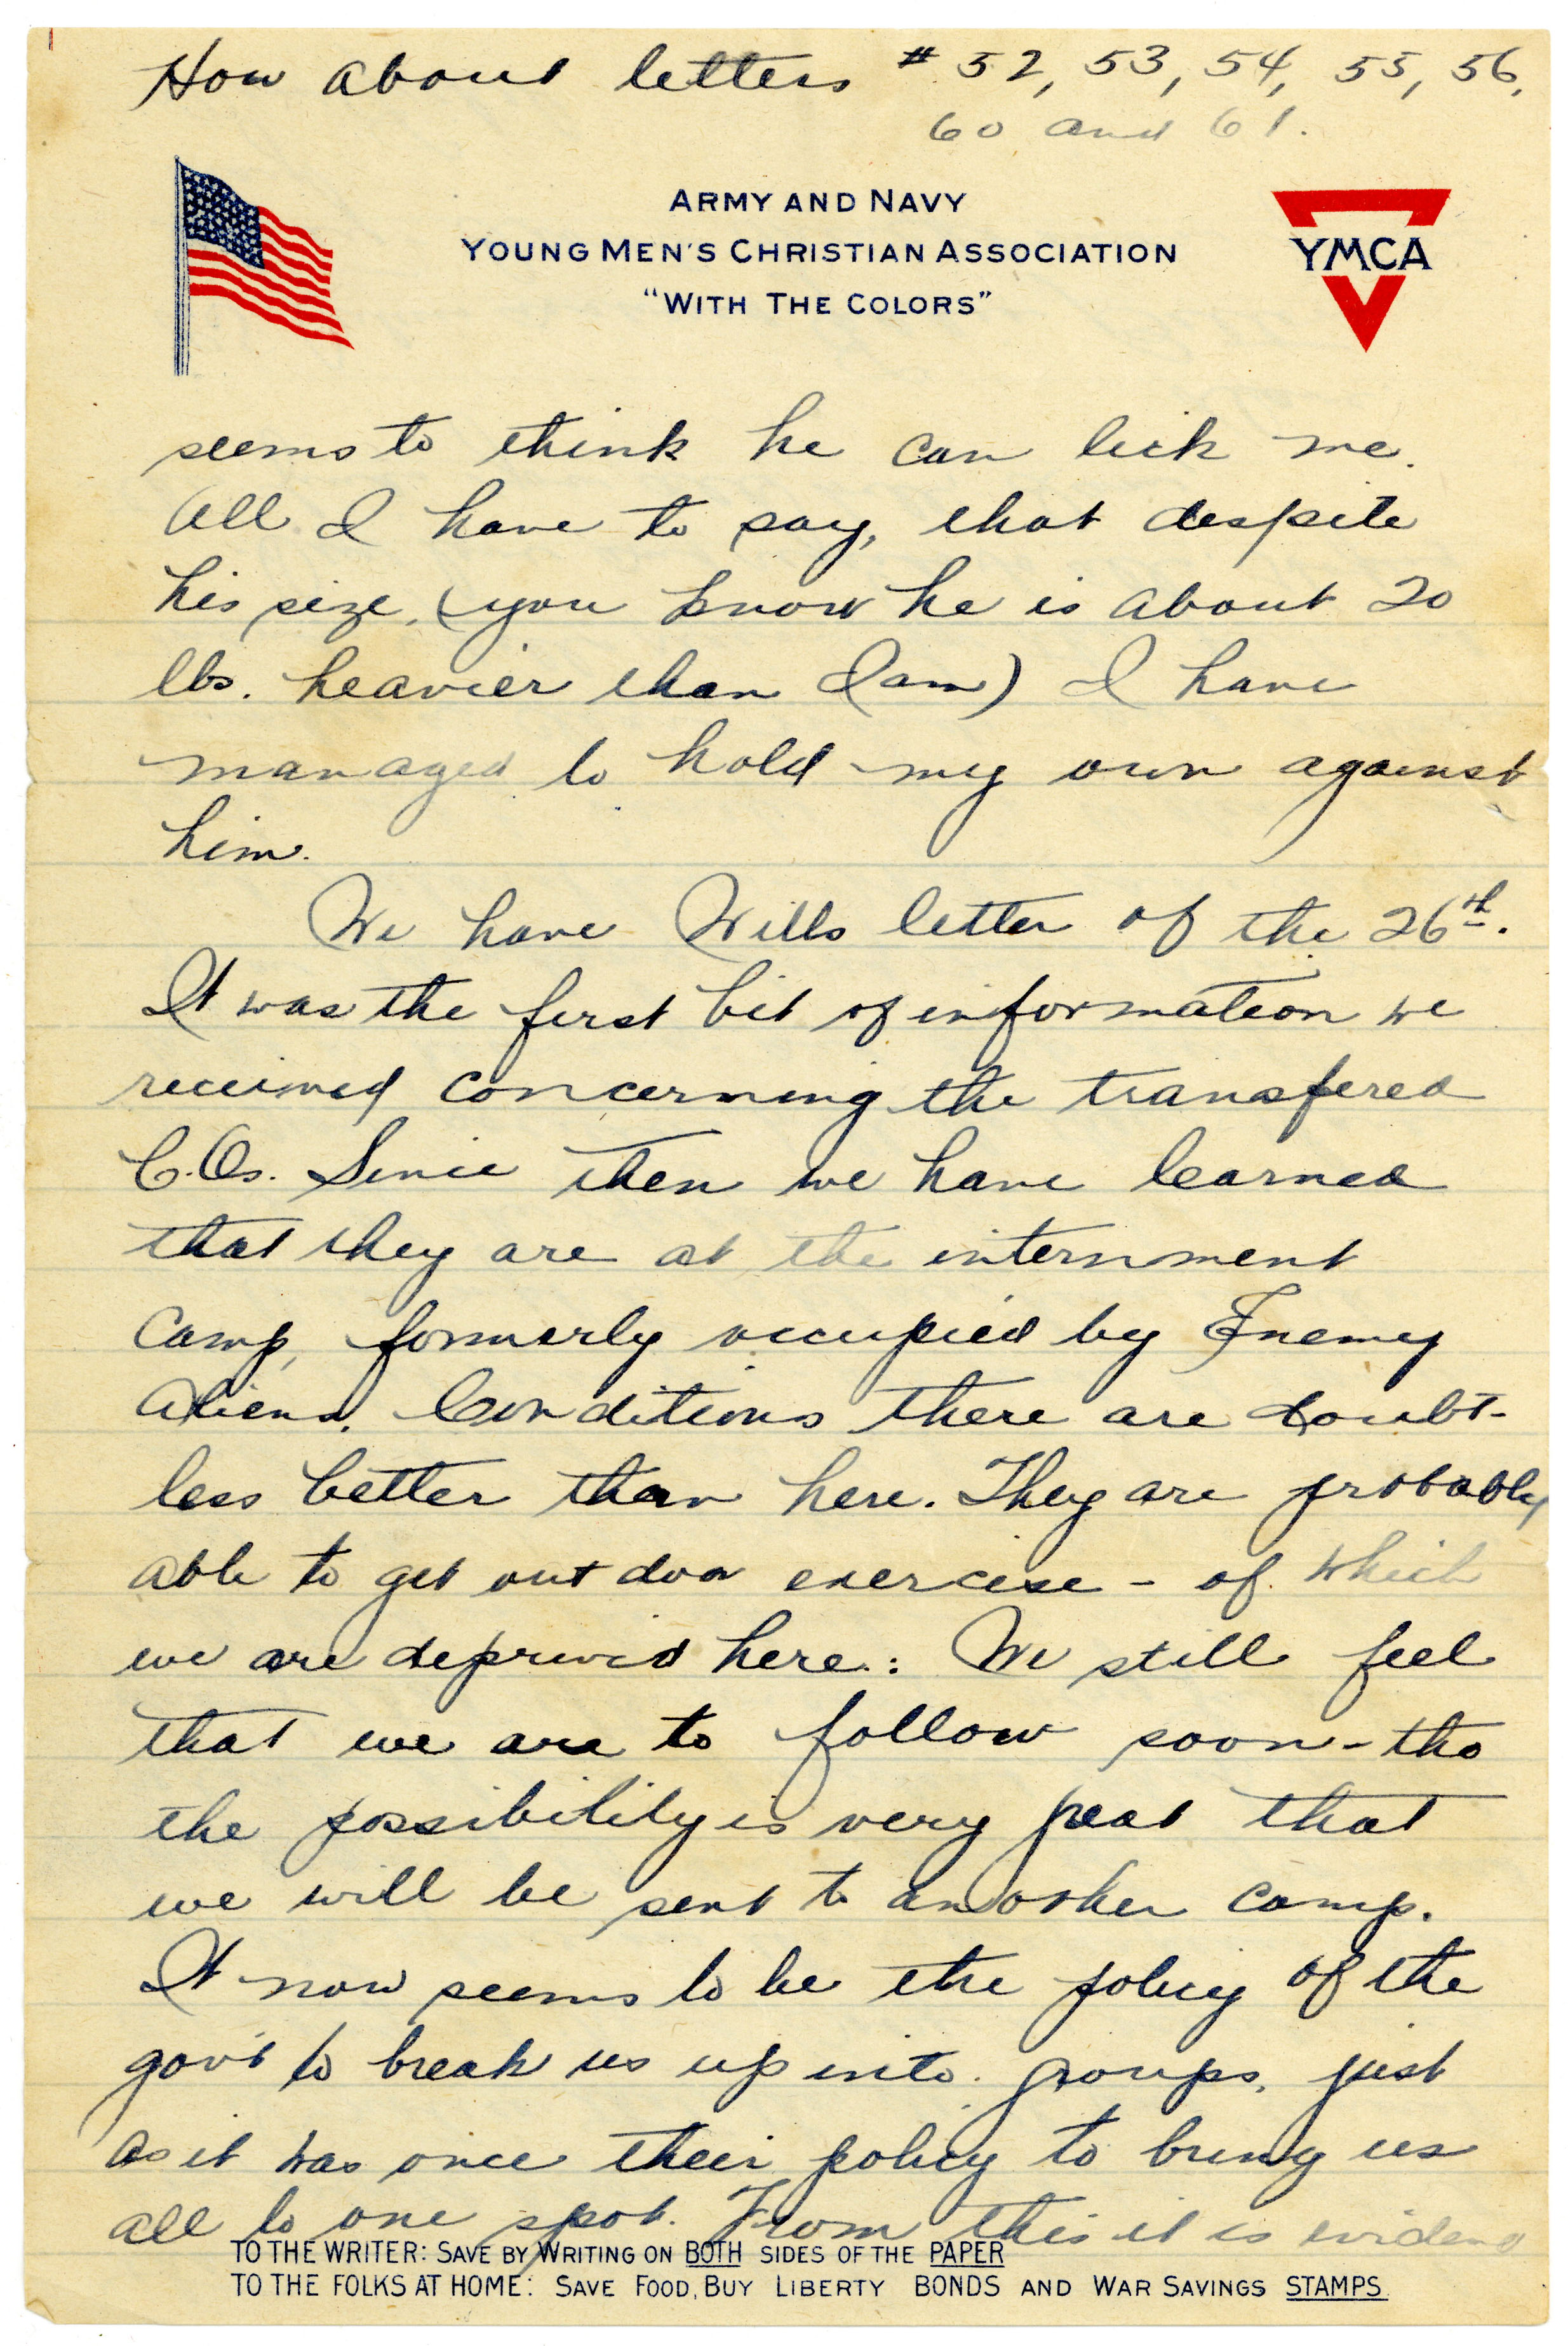 How about letters # 52, 53, 54, 55, 56,
60 and 61.
ARMY AND NAVY
YOUNG MEN'S CHRISTIAN ASSOCIATION
"WITH THE COLORS"
YMCA
seems to think he can lick me.
All I have to say, that despite
his size, (you know he is about 20
lbs. heavier than I am) I have
managed to hold my own against
him.
We have Wills letter of the 26th.
It was the first bit of information we
received concerning the transfered
C.Os. Since then we have learned
that they are at the internment
camp, formerly occupied by Enemy
Aliens. Conditions there are doubt-
less better than here. They are probably
able to get out door exercise - of which
we are deprived here.: We still feel
that we are to follow soon - tho
the possibility is very great that
we will be sent to another camp.
It now seems to be the policy of the
gov't to break us up into groups, just
as it was once their policy to bring us
all to one spot. From this it is evident
TO THE WRITER: SAVE BY WRITING ON BOTH SIDES OF THE PAPER
TO THE FOLKS AT HOME: SAVE FOOD, BUY LIBERTY BONDS AND WAR SAVINGS STAMPS